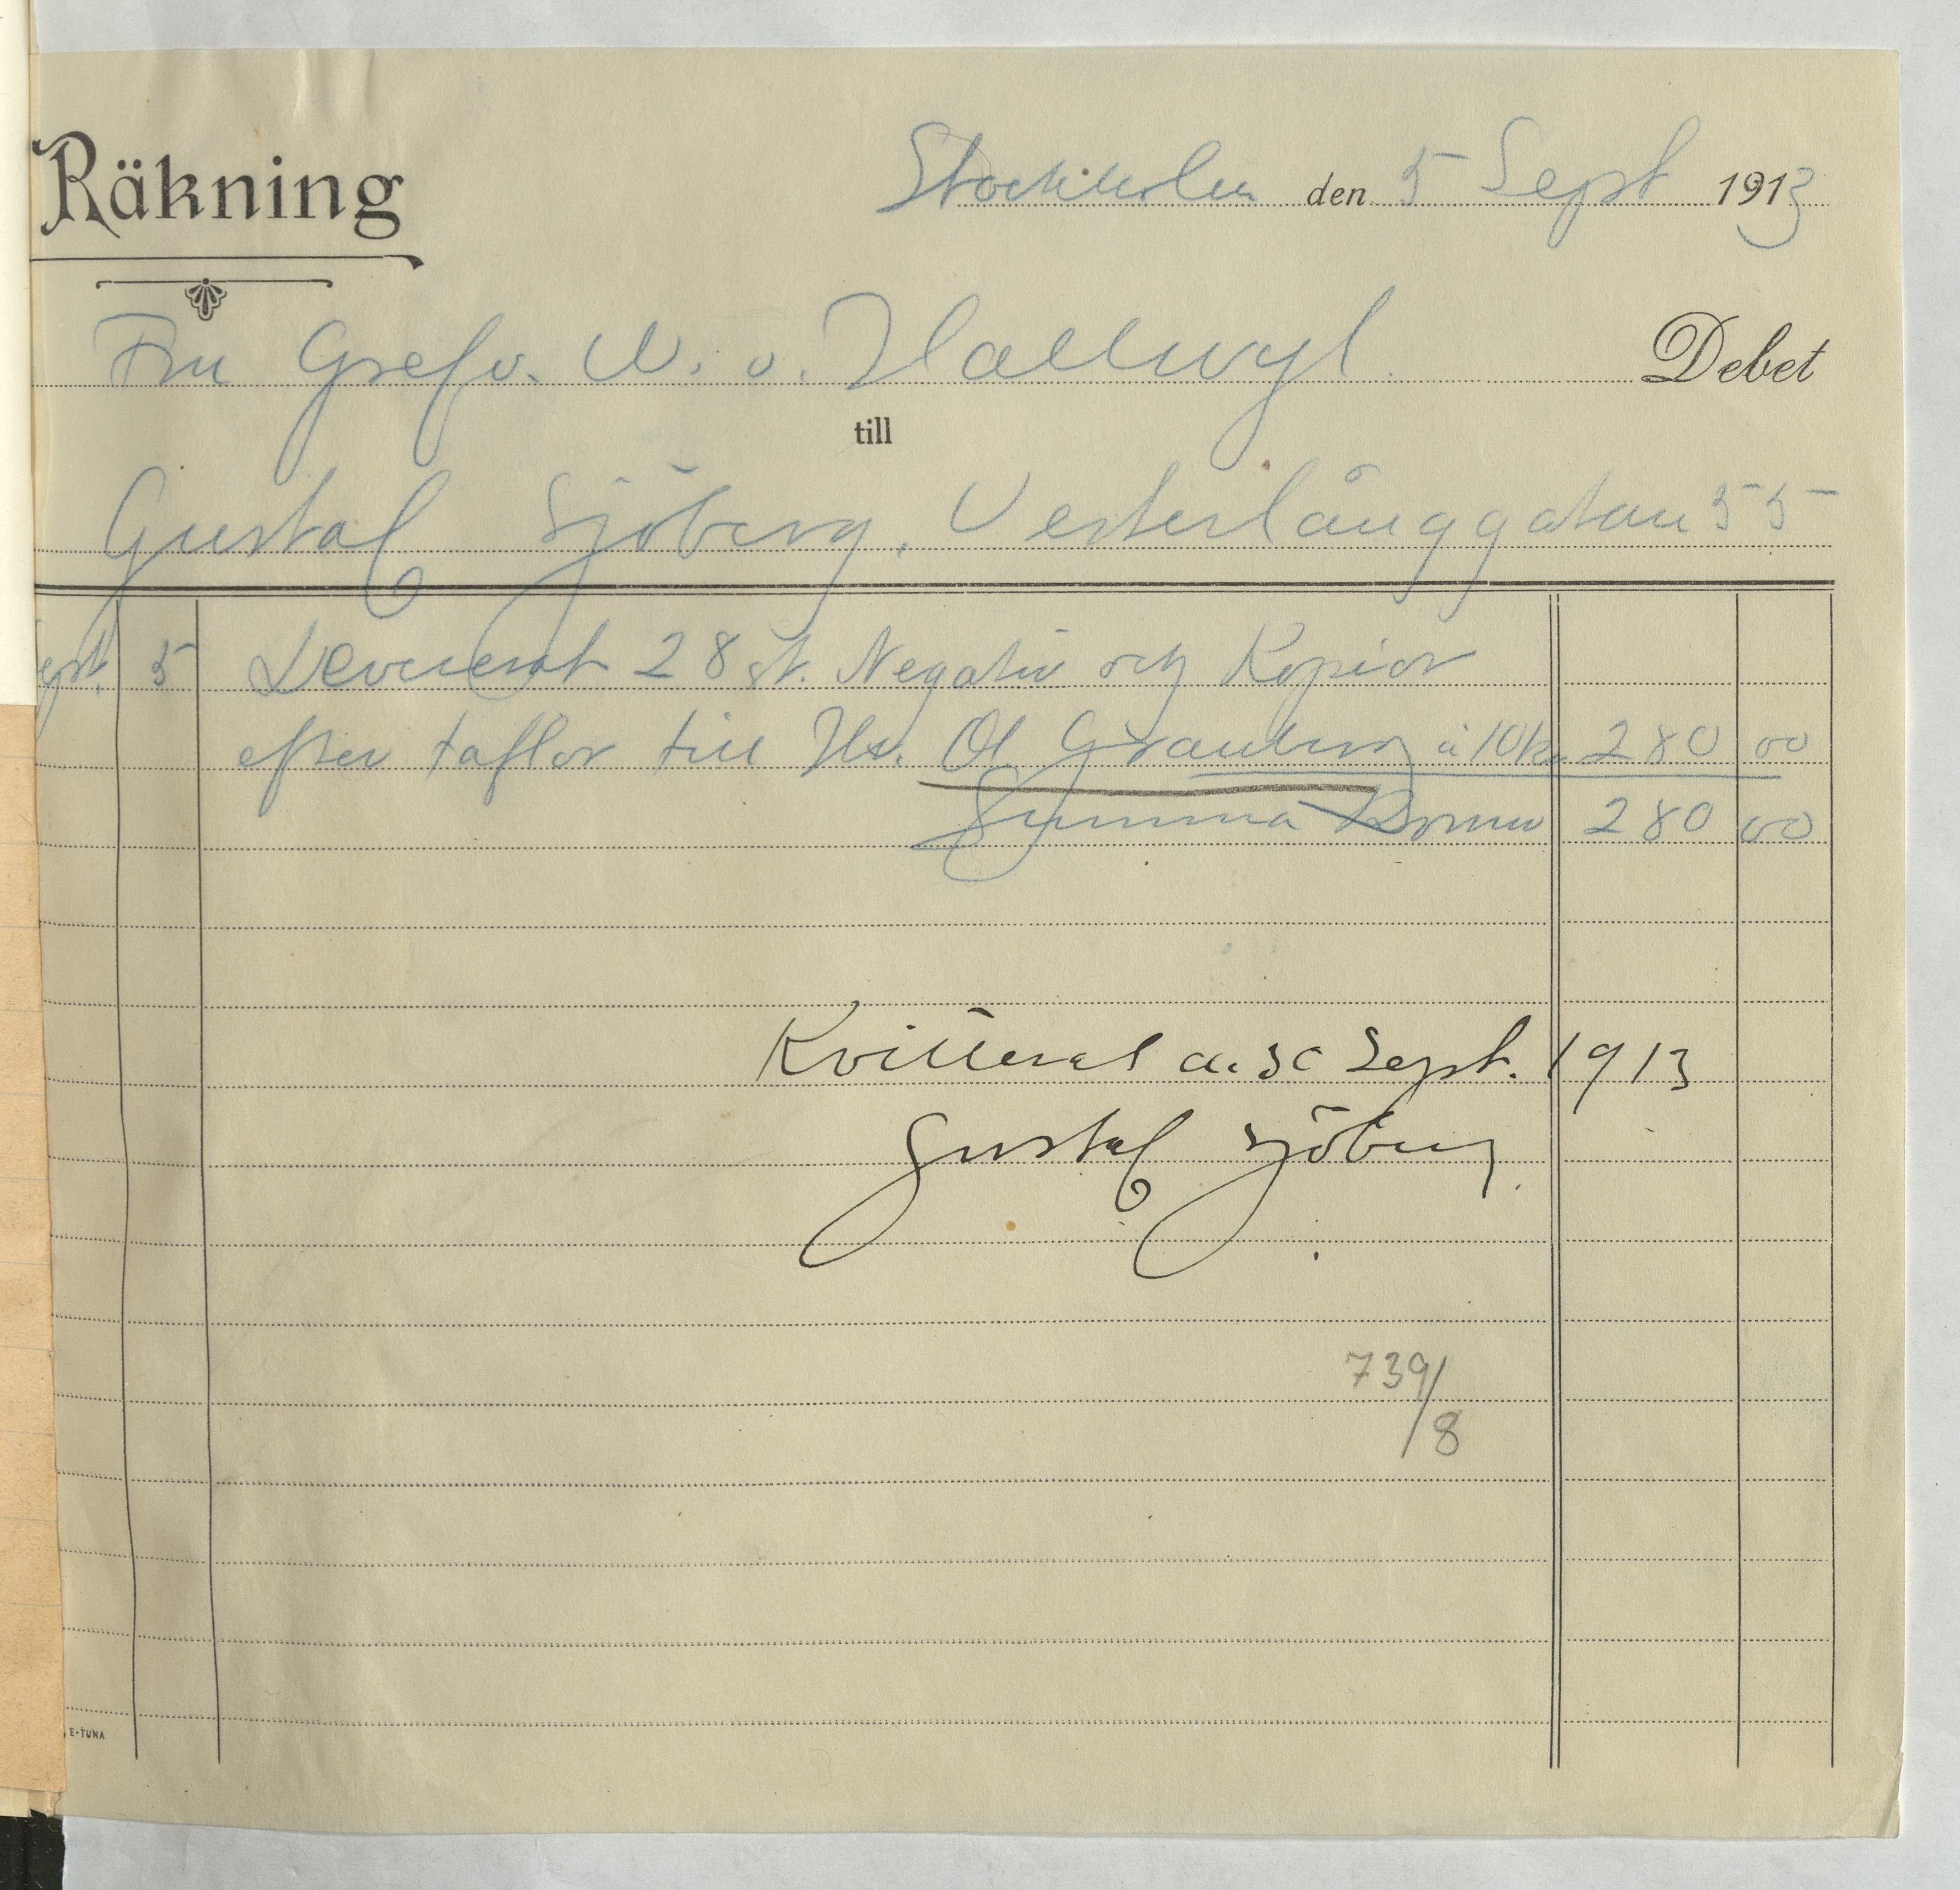 Räkning
Stockholm den 5 Sept 1913
Fru Grefv. W. v. Hallwyl Debet
till
Gustaf Sjöberg, Vesterlånggatan 55
Sept. 5 Levererat 28 st. Negativ och Kopior
efter taflor till Hr. Ol. Granberg à 10 kr 280 00
Summa Kronor 280 00
Kvitteras d. 30 Sept. 1913
Gustaf Sjöberg
739/8
E-TUNA